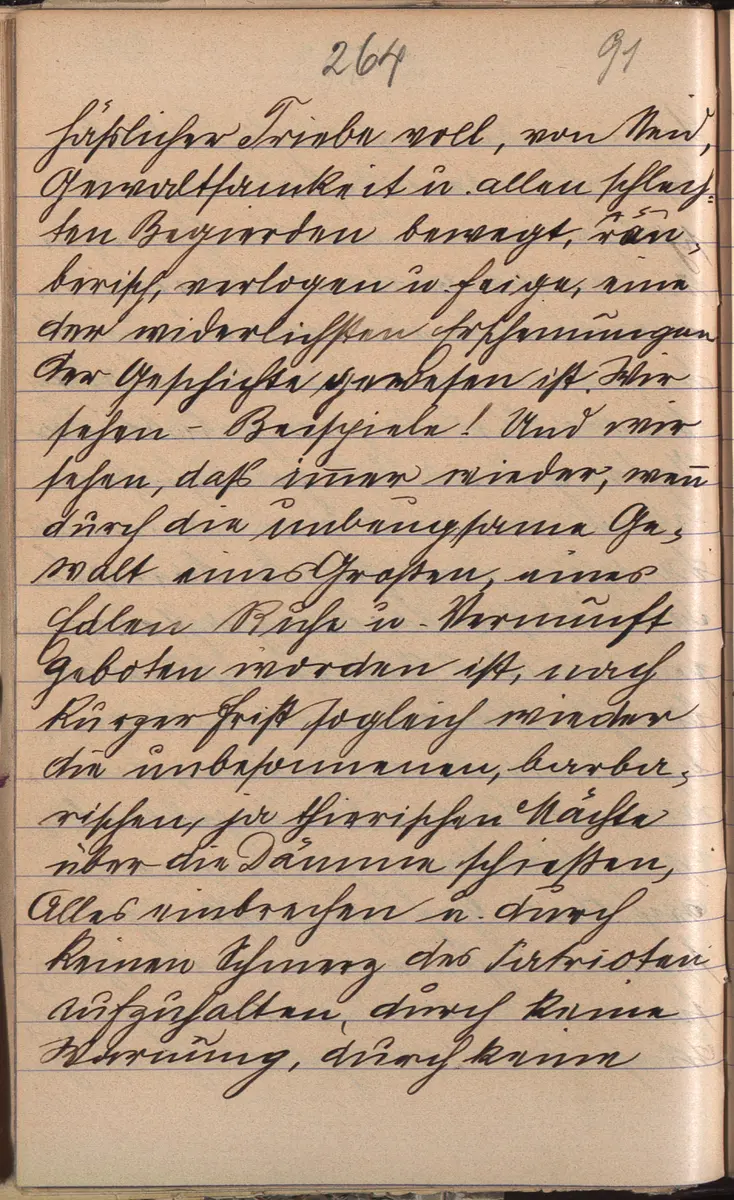 264 91
häßlicher Triebe voll, von Neid,
Gewaltsamkeit u. allen schlech-
ten Begierden bewegt, räu-
berisch, verlogen u. feige, eine
der widerlichsten Erscheinungen
der Geschichte gewesen ist. Wir
sehen – Beispiele! Und wir
sehen, daß im̄er wieder, wen̄
durch die unbeugsame Ge-
walt eines Großen, eines
Edlen Ruhe u. Vernunft
geboten worden ist, nach
kurzer Frist sogleich wieder
die unbesonnenen, barba-
rischen, ja thierischen Mächte
über die Dämme schießen,
Alles einbrechen u. durch
keinen Schmerz des Patrioten
aufzuhalten, durch keine
Warnung, durch keine